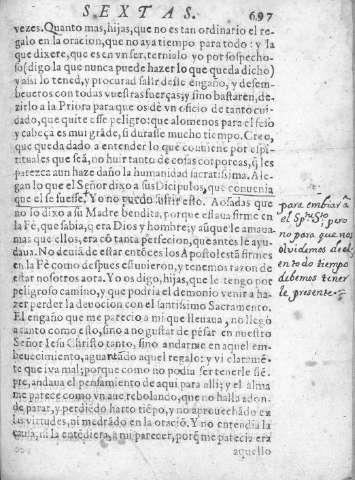 SEXTAS. 697
vezes. Quanto mas, hijas, que no es tan ordinario el re
galo en la oracion, que no aya tiempo para todo: y la
que dixere, que es en vn ser, ternialo yo por sospecho-
so (digo la que nunca puede hazer lo que queda dicho)
y assi lo tened, y procurad salir desse engaño, y desem
beueros con todas vuestras fuerças; y sino bastaren, de-
zirlo a la Priora para que os dè vn oficio de tanto cui-
dado, que quite esse peligro: que alomenos para el seso
y cabeça es mui gráde, si durasse mucho tiempo. Creo,
que queda dado a entender lo que conuiene por espi-
rituales que seã, no huir tanto de cosas corporeas, q̃ les
parezca aun haze daño la humanidad sacratissima. Ale
gan lo que el Señor dixo a sus Dicipulos, que conuenia
que el se fuesse. Yo no puedo sufrir esto. Aosadas que
no lo dixo a su Madre bendita, porque estaua firme en
la Fè, que sabia, q era Dios y hombre; y aũque le amaua
mas que ellos, era cõ tanta perfecion, que antes le ayu-
daua. No deuiã de estar entõces los Apostoles tã firmes
en la Fè como despues estuuieron, y tenemos razon de
estar nosotros aora. Yo os digo, hijas, que le tengo por
peligroso camino, y que podria el demonio venir a ha-
zer perder la deuocion con el santissimo Sacramento.
El engaño que me parecio a mi que lleuaua, no llegò
a tanto como esto, sino a no gustar de pẽsar en nuestro
Señor Iesu Christo tanto, sino andarme en aquel em-
beuecimiento, aguardãdo aquel regalo: y vi claramẽ-
te que iva mal; porque como no podia ser tenerle siẽ-
pre, andaua el pensamiento de aqui para alli; y el alma
me parece como vn aue rebolando, que no halla adon-
de parar, y perdiẽdo harto tiẽpo, y no aprouechãdo en
las virtudes, ni medrãdo en la oraciõ. Y no entendia la
causa, ni la entẽdiera, a mi parecer, porq̃ me parecia era
aquello
para embiarã
el Spũ Sto pero
no para que nos
olvidemos de el,
en todo tiempo
debemos tener
le presente